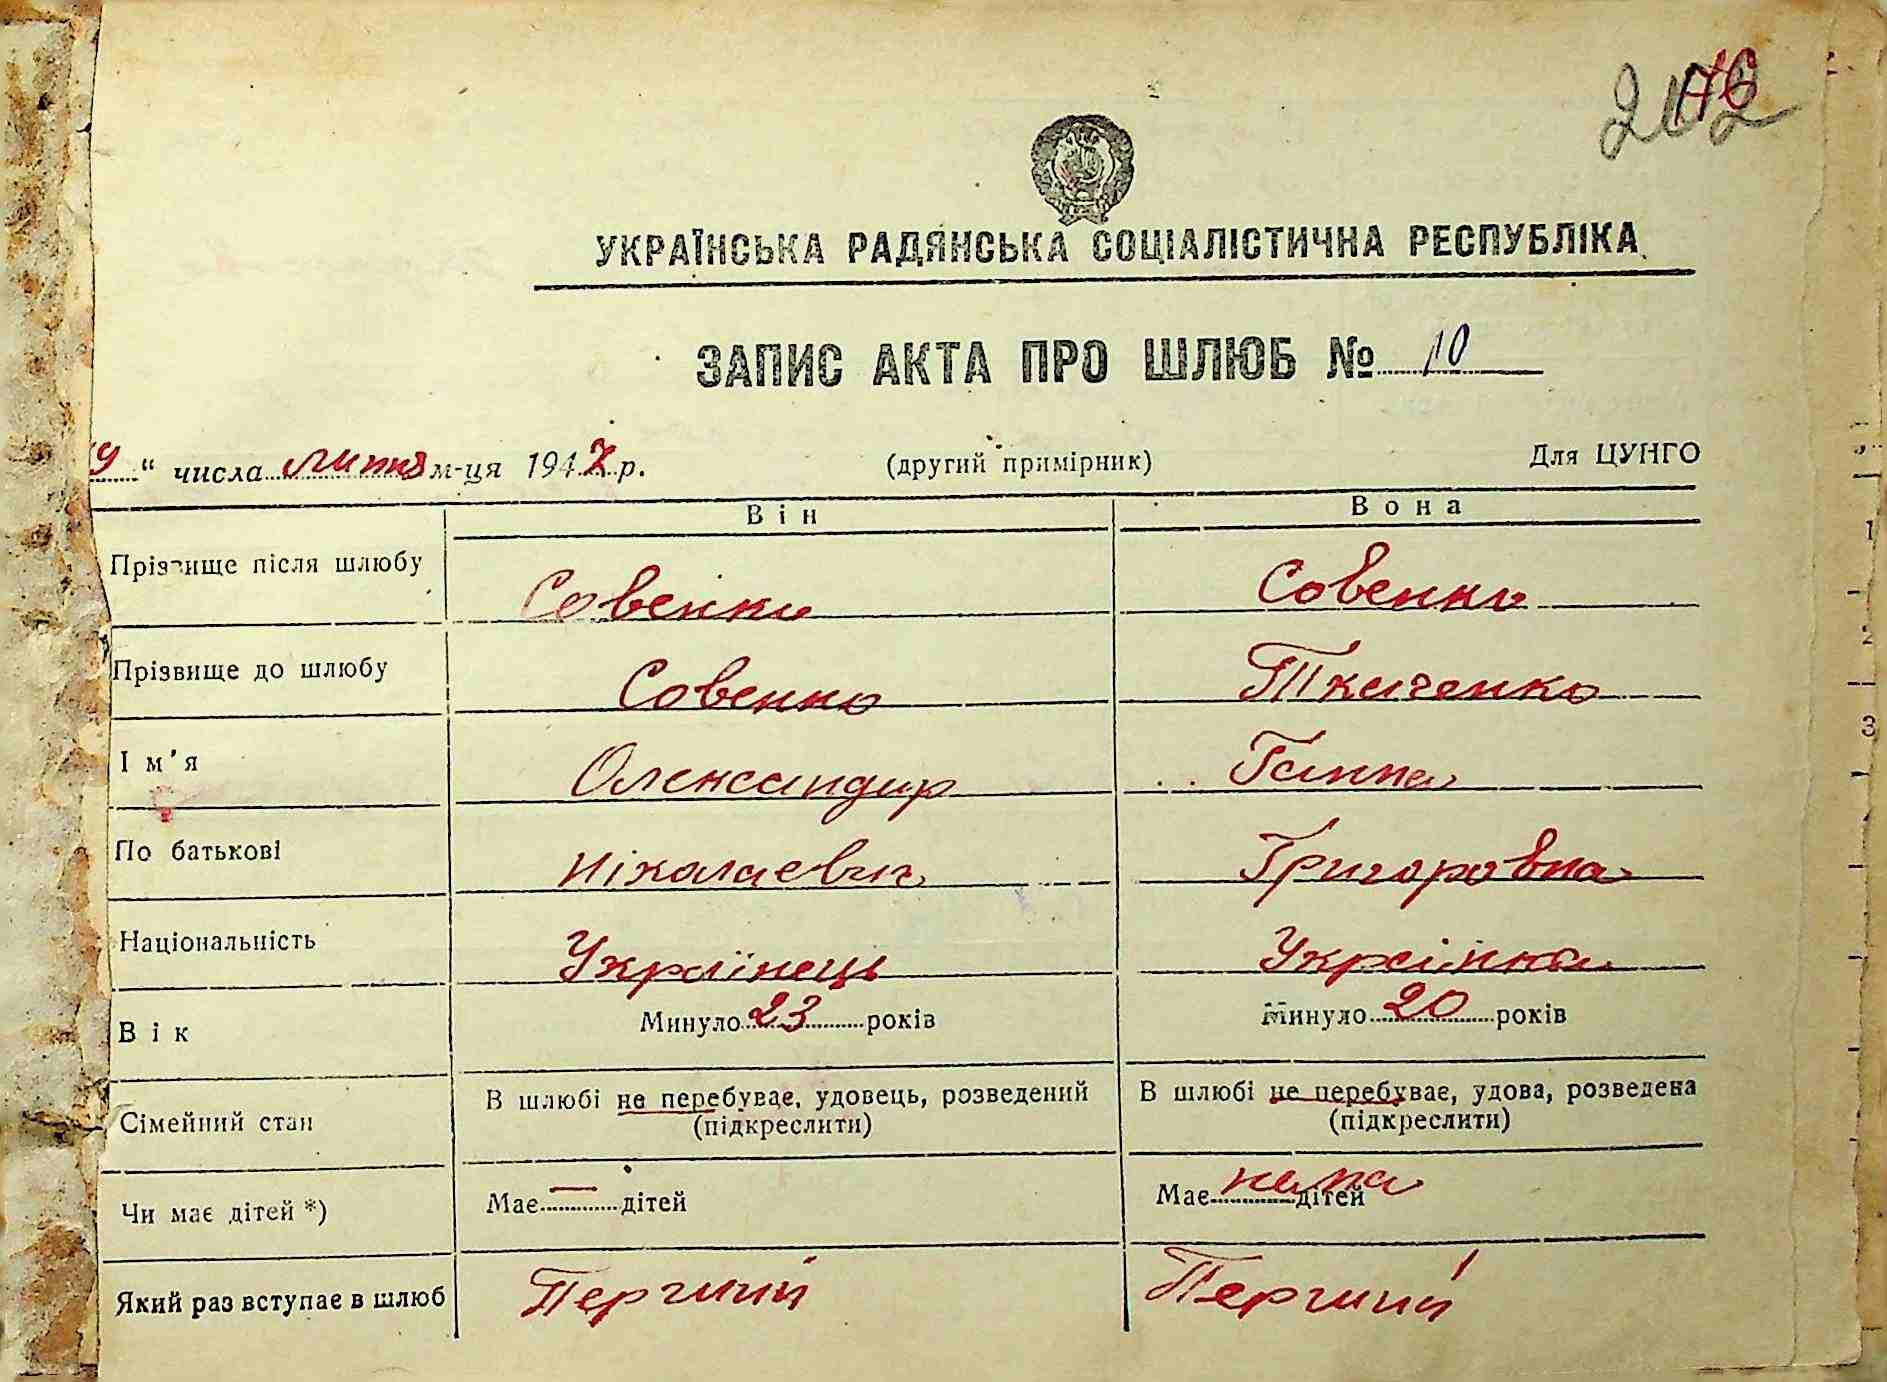 УКРАЇНСЬКА РАДЯНСЬКА СОЦІАЛІСТИЧНА РЕСПУБЛІКА
ЗАПИС АКТА ПРО ШЛЮБ № 10
9 " числа липня м-ця 1947 р. (другий примірник) Для ЦУНГО
Він Вона
Прізвище після шлюбу Совенко Совенко
Прізвище до шлюбу Совенко Ткаченко
Ім'я Олександир Ганна
По батькові Ніколаевич Григоровна
Національність Українець Українка
Вік Минуло 23 років Минуло 20 років
Сімейний стан В шлюбі не перебуває, удовець, розведений В шлюбі не перебуває, удова, розведена
(підкреслити) (підкреслити)
Чи має дітей *) Має — дітей Має нема дітей
Який раз вступає в шлюб Перший Перший